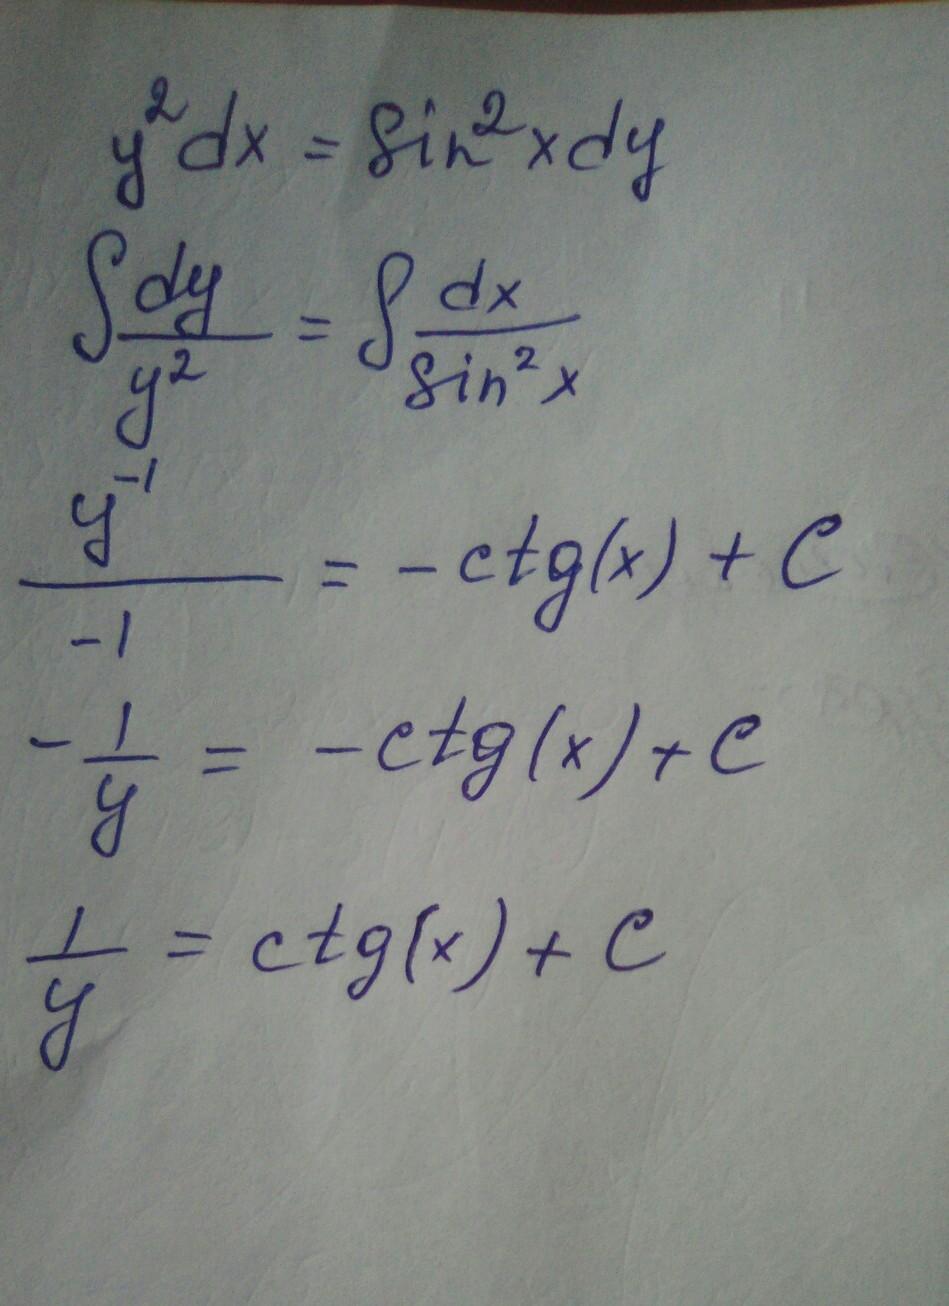 y² dx = sin² x dy
∫ dy/y² = ∫ dx/sin² x
y⁻¹/-1 = -ctg(x) + C
-1/y = -ctg(x) + C
1/y = ctg(x) + C